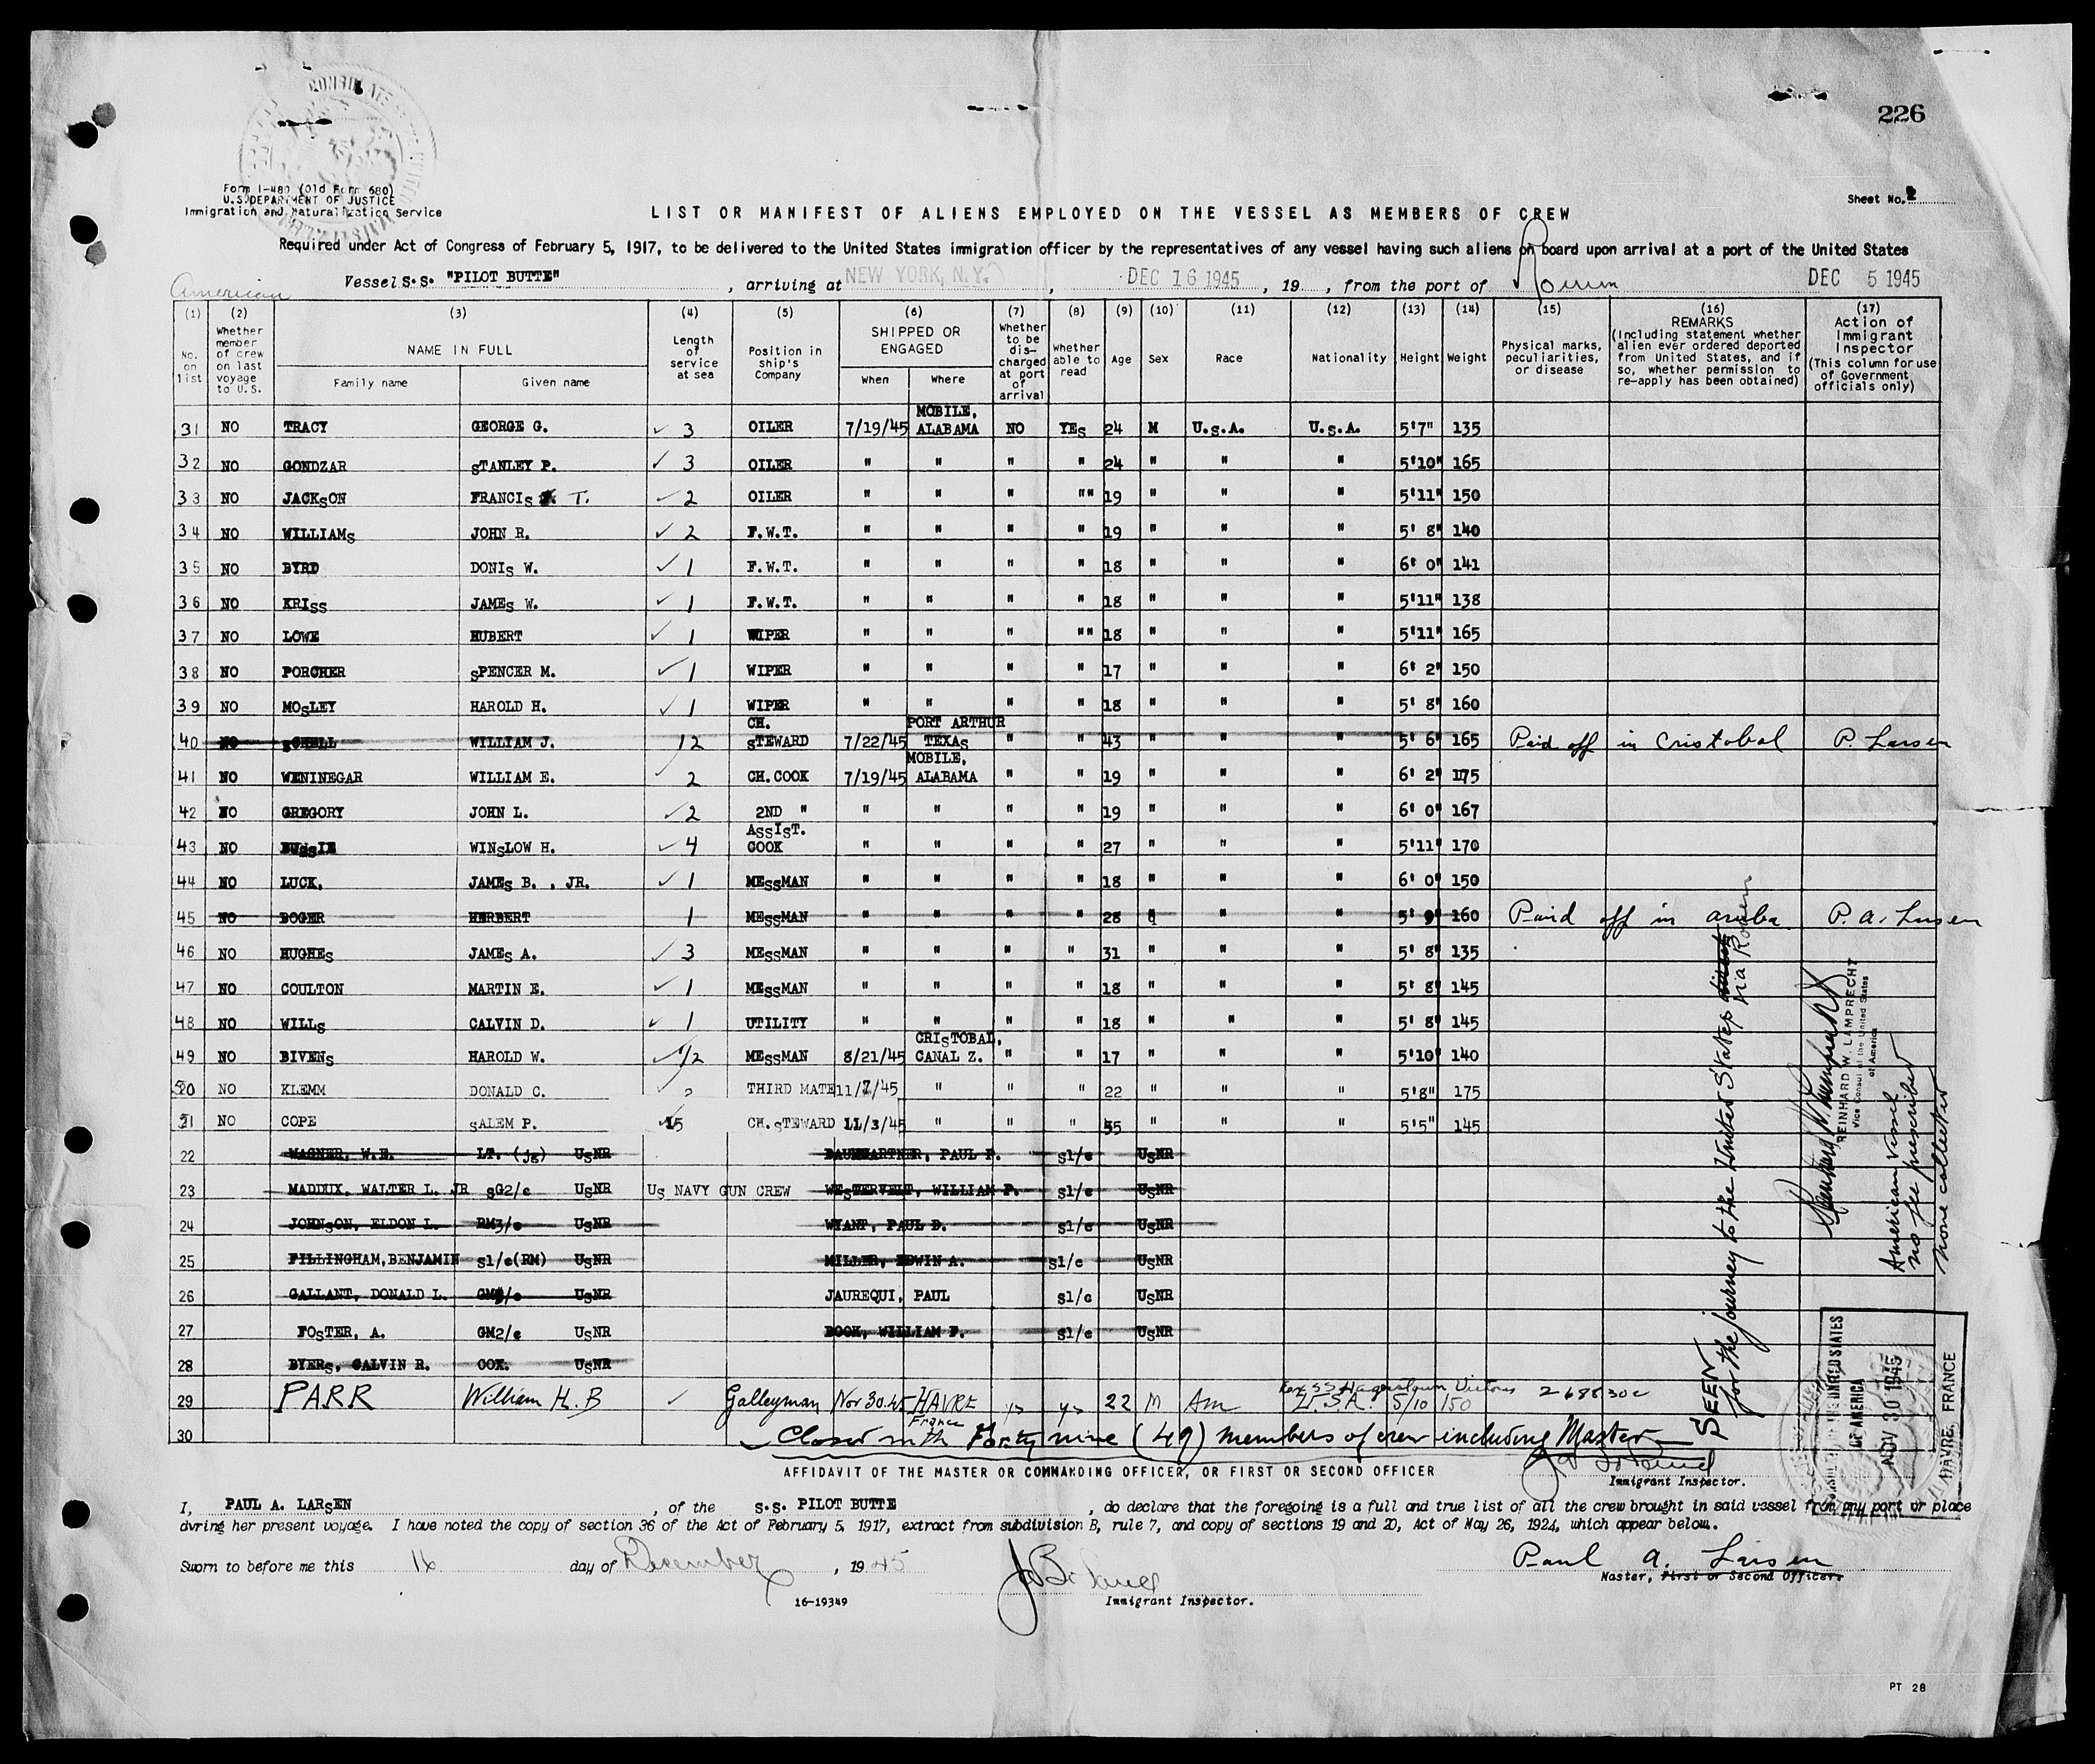 226
CONSULATE
Form I-480 (Old Form 680)
U.S. DEPARTMENT OF JUSTICE
Immigration and Naturalization Service
Sheet No. 2
LIST OR MANIFEST OF ALIENS EMPLOYED ON THE VESSEL AS MEMBERS OF CREW
Required under Act of Congress of February 5, 1917, to be delivered to the United States immigration officer by the representatives of any vessel having such aliens on board upon arrival at a port of the United States
American Vessel S.S. "PILOT BUTTE", arriving at NEW YORK, N.Y., DEC 16 1945, 19 , from the port of Rouen DEC 5 1945
(1) (2) (3) (4) (5) (6) (7) (8) (9) (10) (11) (12) (13) (14) (15) (16) (17)
No. on list
Whether member of crew on last voyage to U.S.
NAME IN FULL
Family name Given name
Length of service at sea
Position in ship's Company
SHIPPED OR ENGAGED
When Where
Whether to be discharged at port of arrival
Whether able to read
Age Sex Race Nationality Height Weight
Physical marks, peculiarities, or disease
REMARKS (Including statement whether alien ever ordered deported from United States, and if so, whether permission to re-apply has been obtained)
Action of Immigrant Inspector (This column for use of Government officials only)
31 NO TRACY GEORGE G. 3 OILER 7/19/45 MOBILE, ALABAMA NO YES 24 M U.S.A. U.S.A. 5'7" 135
32 NO GONDZAR STANLEY P. 3 OILER " " " " 24 " " " 5'10" 165
33 NO JACKSON FRANCIS T. 2 OILER " " " "" 19 " " " 5'11" 150
34 NO WILLIAMS JOHN R. 2 F.W.T. " " " " 19 " " " 5' 8" 140
35 NO BYRD DONIS W. 1 F.W.T. " " " " 18 " " " 6' 0" 141
36 NO KRISS JAMES W. 1 F.W.T. " " " " 18 " " " 5'11" 138
37 NO LOWE HUBERT 1 WIPER " " " "" 18 " " " 5'11" 165
38 NO PORCHER SPENCER M. 1 WIPER " " " " 17 " " " 6' 2" 150
39 NO MOSLEY HAROLD H. 1 WIPER " " " " 18 " " " 5' 8" 160
40 NO SCHELL WILLIAM J. 12 CH. STEWARD 7/22/45 PORT ARTHUR TEXAS " " 43 " " " 5' 6" 165 Paid off in Cristobal P. Larsen
41 NO WENINEGAR WILLIAM E. 2 CH. COOK 7/19/45 MOBILE, ALABAMA " " 19 " " " 6' 2" 175
42 NO GREGORY JOHN L. 2 2ND " " " " " 19 " " " 6' 0" 167
43 NO WINSLOW H. 4 ASSIST. COOK " " " " 27 " " " 5'11" 170
44 NO LUCK, JAMES B. , JR. 1 MESSMAN " " " " 18 " " " 6' 0" 150
45 NO BOGER HERBERT 1 MESSMAN " " " " 28 " " " 5' 9" 160 Paid off in aruba P. A. Larsen
46 NO HUGHES JAMES A. 3 MESSMAN " " " " 31 " " " 5' 8" 135
47 NO COULTON MARTIN E. 1 MESSMAN " " " " 18 " " " 5' 8" 145
48 NO WILLS CALVIN D. 1 UTILITY " " " " 18 " " " 5' 8" 145
49 NO BIVENS HAROLD W. 1/2 MESSMAN 8/21/45 CRISTOBAL, CANAL Z. " " 17 " " " 5'10" 140
50 NO KLEMM DONALD C. 2 THIRD MATE 11/7/45 " " " 22 " " " 5'8" 175
21 NO COPE SALEM P. 15 CH. STEWARD 11/3/45 " " " 55 " " " 5'5" 145
22 WAGNER, W.E. LT. (jg) USNR BAUMGARTNER, PAUL P. S1/c USNR
23 MADDUX, WALTER L. JR SG2/c USNR US NAVY GUN CREW WESTERVELT, WILLIAM P. S1/c USNR
24 JOHNSON, ELDON L. RM3/c USNR WYANT, PAUL D. S1/c USNR
25 FILLINGHAM, BENJAMIN S1/c(RM) USNR MILLER, EDWIN A. S1/c USNR
26 GALLANT, DONALD L. GM3/c USNR JAUREQUI, PAUL S1/c USNR
27 FOSTER, A. GM2/c USNR BOOK, WILLIAM F. S1/c USNR
28 BYERS, CALVIN R. COX. USNR
29 PARR William H. B Galleyman Nov 30.45 HAVRE France yes yes 22 M Am U.S.A. 5/10 150
30 Closed with Forty nine (49) members of crew including Master
SEEN
for the journey to the United States via Rouen
REINHARD W. LAMPRECHT
Vice Consul of the United States
of America
American vessel
no fee prescribed
none collected
CONSULATE OF THE UNITED STATES
OF AMERICA
NOV 30 1945
HAVRE, FRANCE
AFFIDAVIT OF THE MASTER OR COMMANDING OFFICER, OR FIRST OR SECOND OFFICER
Immigrant Inspector.
I, PAUL A. LARSEN, of the S.S. PILOT BUTTE, do declare that the foregoing is a full and true list of all the crew brought in said vessel from any port or place
during her present voyage. I have noted the copy of section 36 of the Act of February 5, 1917, extract from subdivision B, rule 7, and copy of sections 19 and 20, Act of May 26, 1924, which appear below.
Sworn to before me this 16 day of December, 1945
Paul A. Larsen
Master, First or Second Officer.
16-19349
Immigrant Inspector.
PT 28